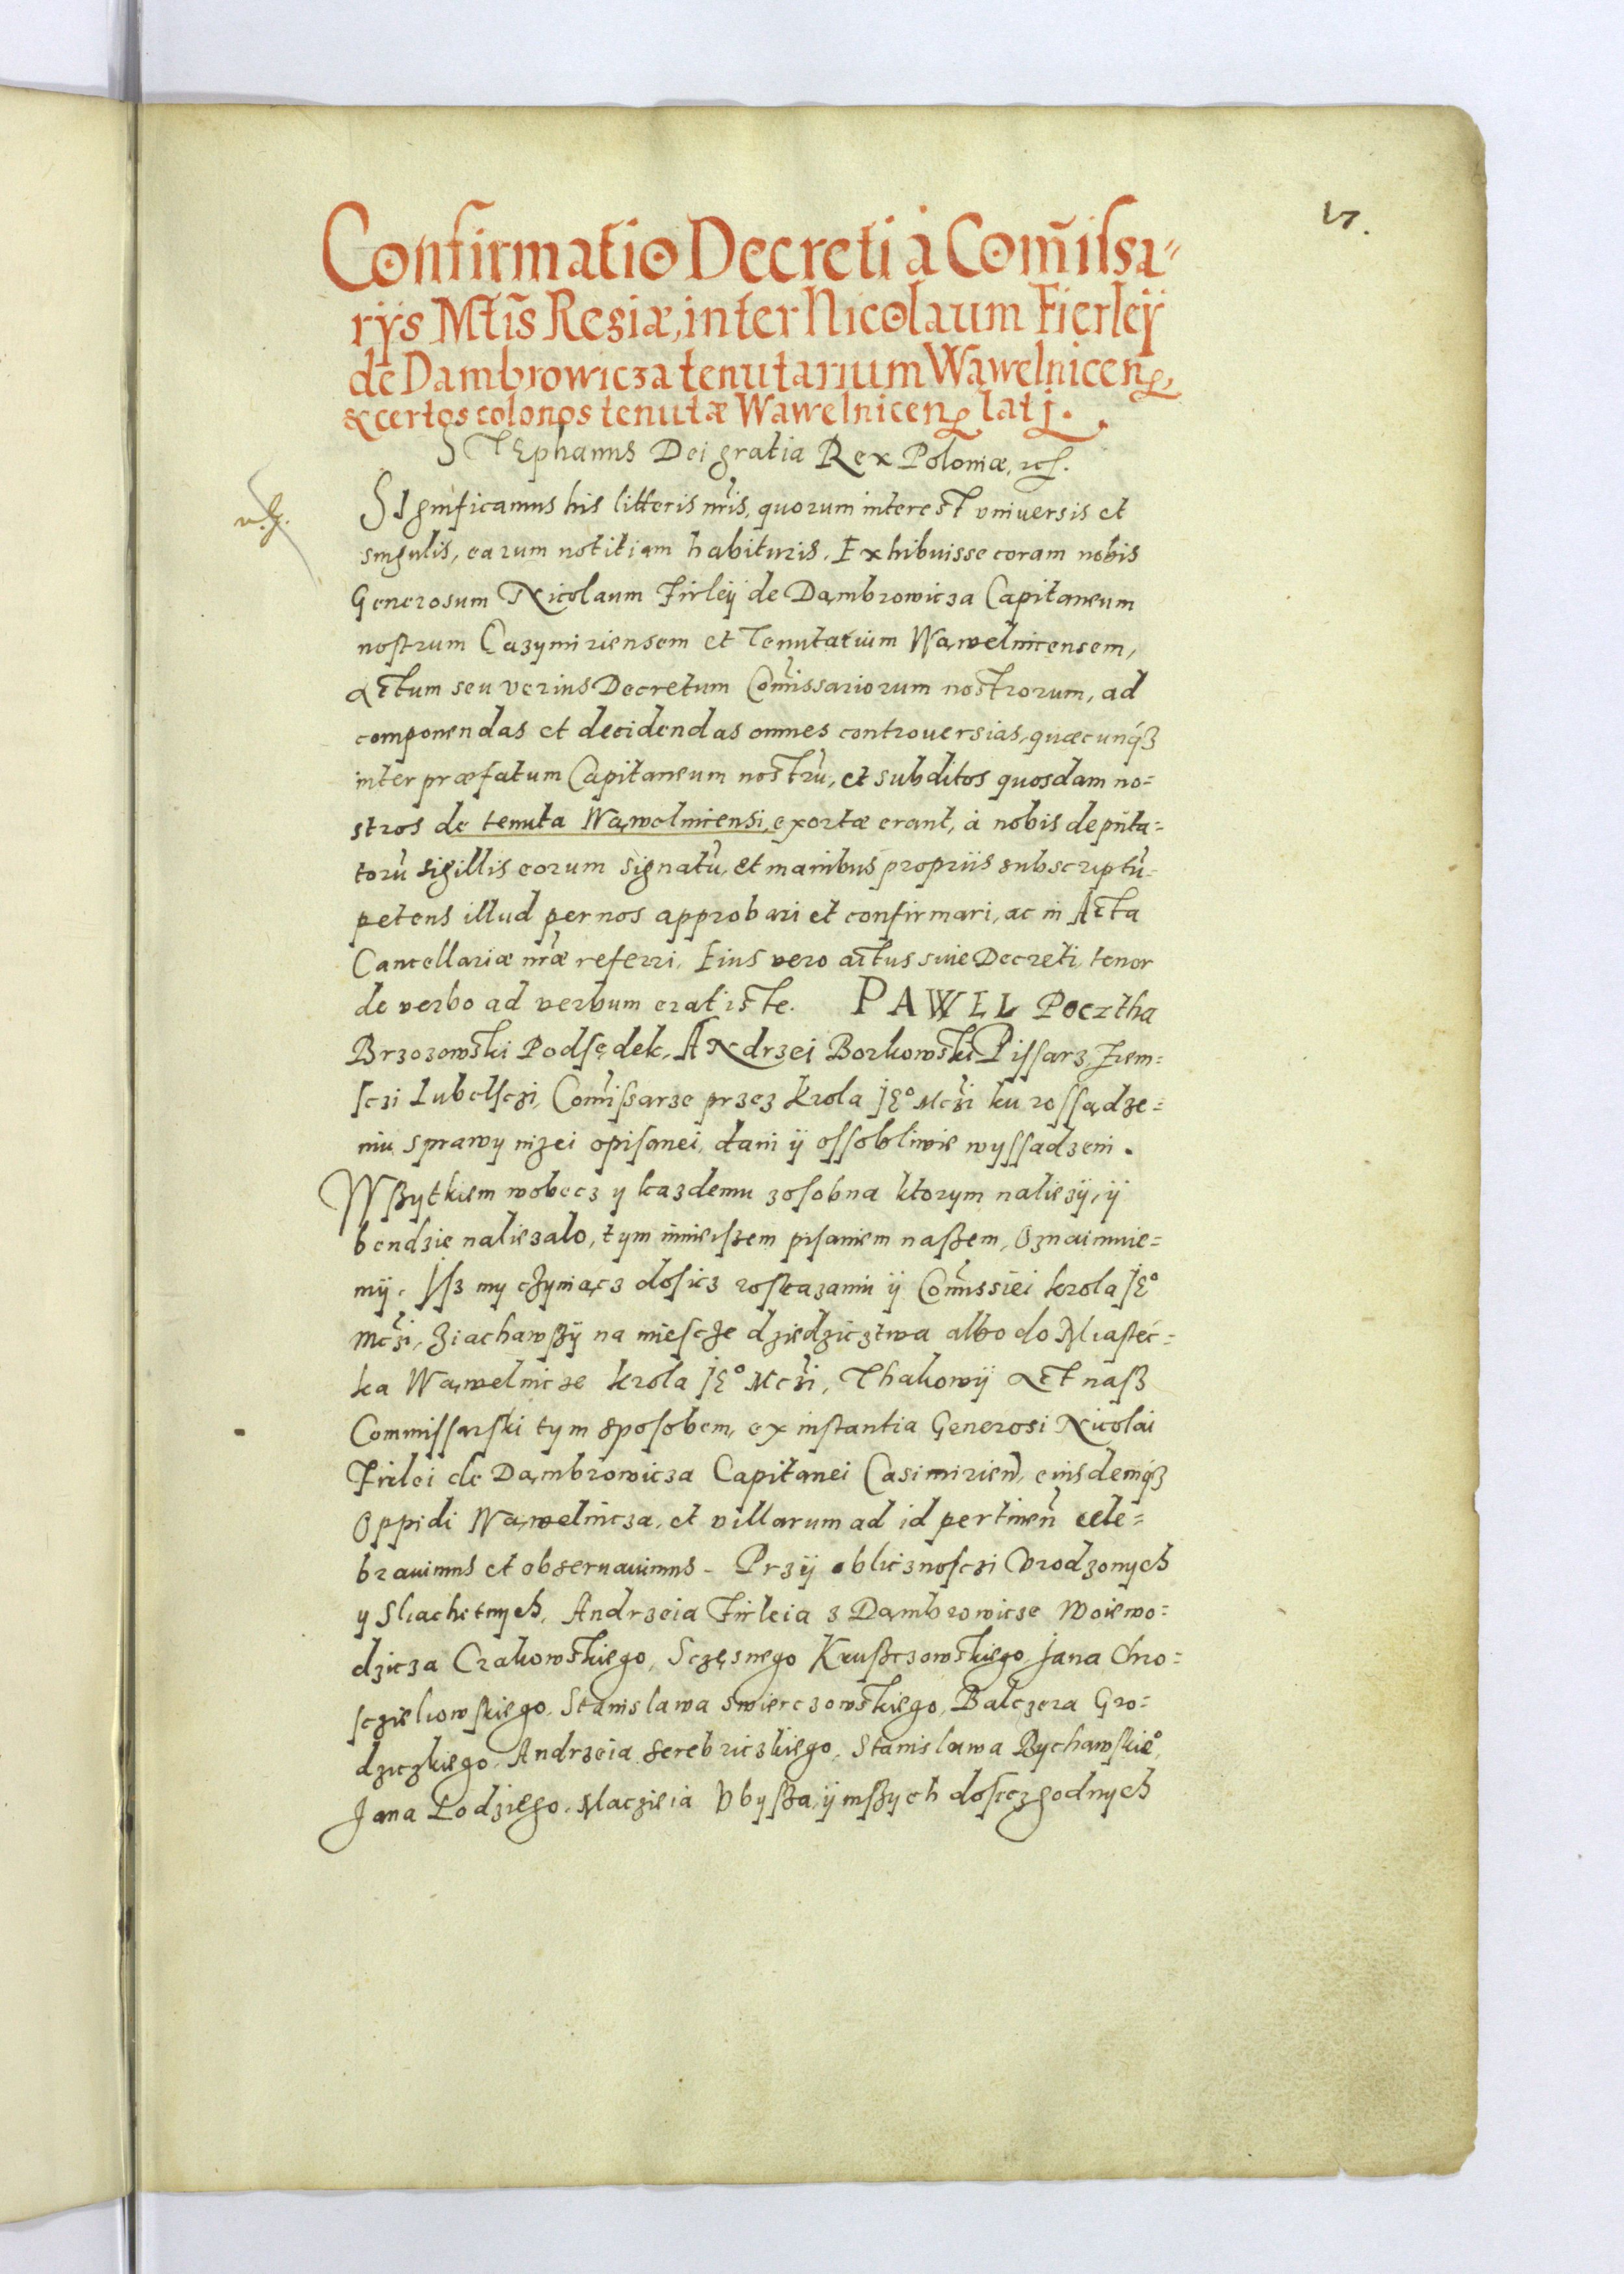 17.
Confirmatio Decreti à Com̃issa=
rijs Mt̃is Regiæ, inter Nicolaum Fierleÿ
de Dambrowicza tenutarium Wąwelnicen̄,
& certos colonos tenutæ Wąwelnicen̄ latj.
STEphanus Dei gratia Rex Poloniæ, etc.
SIgnificamus his litteris nr̃is, quorum interest vniuersis et
singulis, earum notitiam habituris. Exhibuisse coram nobis
Generosum Nicolaum Firleÿ de Dąmbrowicza Capitaneum
nostrum Cazymiriensem et Tenutarium Wąwelnicensem,
actum seu verius Decretum Com̃issariorum nostrorum, ad
componendas et decidendas omnes controuersias, quæcunq́ꝫ
inter præfatum Capitaneum nostrũ, et subditos quosdam no=
stros de tenuta Wąwelnicensi, exortæ erant, à nobis deputa=
torũ sigillis eorum signatũ, et manibus propriis subscriptũ.
petens illud per nos approbari et confirmari, ac in Acta
Cancellariæ nr̃æ referri. Eius vero actus siue Decreti tenor
de verbo ad verbum erat iste. PAWEL Pocztha
Brzozowski Podsędek, ANdrzei Borkowski Pissarz Ziem=
sczi Lubelsczi, Com̃issarze przez Krola JE° Mczi ku rossądze=
niu sprawy nizei opisanei, dani ÿ ossobliwie wyssadzeni.
Wszytkiem wobecz y kazdemu zosobna ktorym naliezÿ, ÿ
bendzie naliezalo, tym ninieiszem pisaniem naszem, Oznaimuie=
mÿ. Isz my czyniącz dosicz roskazaniu ÿ Com̃issiei krola JE°
Mczi, Ziachawszÿ na miescze dziedzicztwa albo do Miastec=
ka Wąwelnicze krola JE° Mczi, Thakowÿ Act nasz
Commissarski tym sposobem, ex instantia Generosi Nicolai
Firlei de Dąmbrowicza Capitanei Casimirien̄, eiusdemq́ꝫ
Oppidi Wąwelnicza, et villarum ad id pertinen̄ cele=
brauimus et obseruauimus. Przÿ oblicznosczi Vrodzonych
y Slachetnych, Andrzeia Firleia z Dąmbrowicze Woiewo=
dzicza Crakowskiego, Sczęsnego Kruszczowskiego, Jana Chro=
sczielowskiego, Stanislawa Swierczowskiego, Balczera Gro=
dziczkiego, Andrzeia Serebriczkiego, Stanislawa Bychawskie°,
Jana Lodziego, Maczieia Vbysza, ÿ inszych dosicz godnych